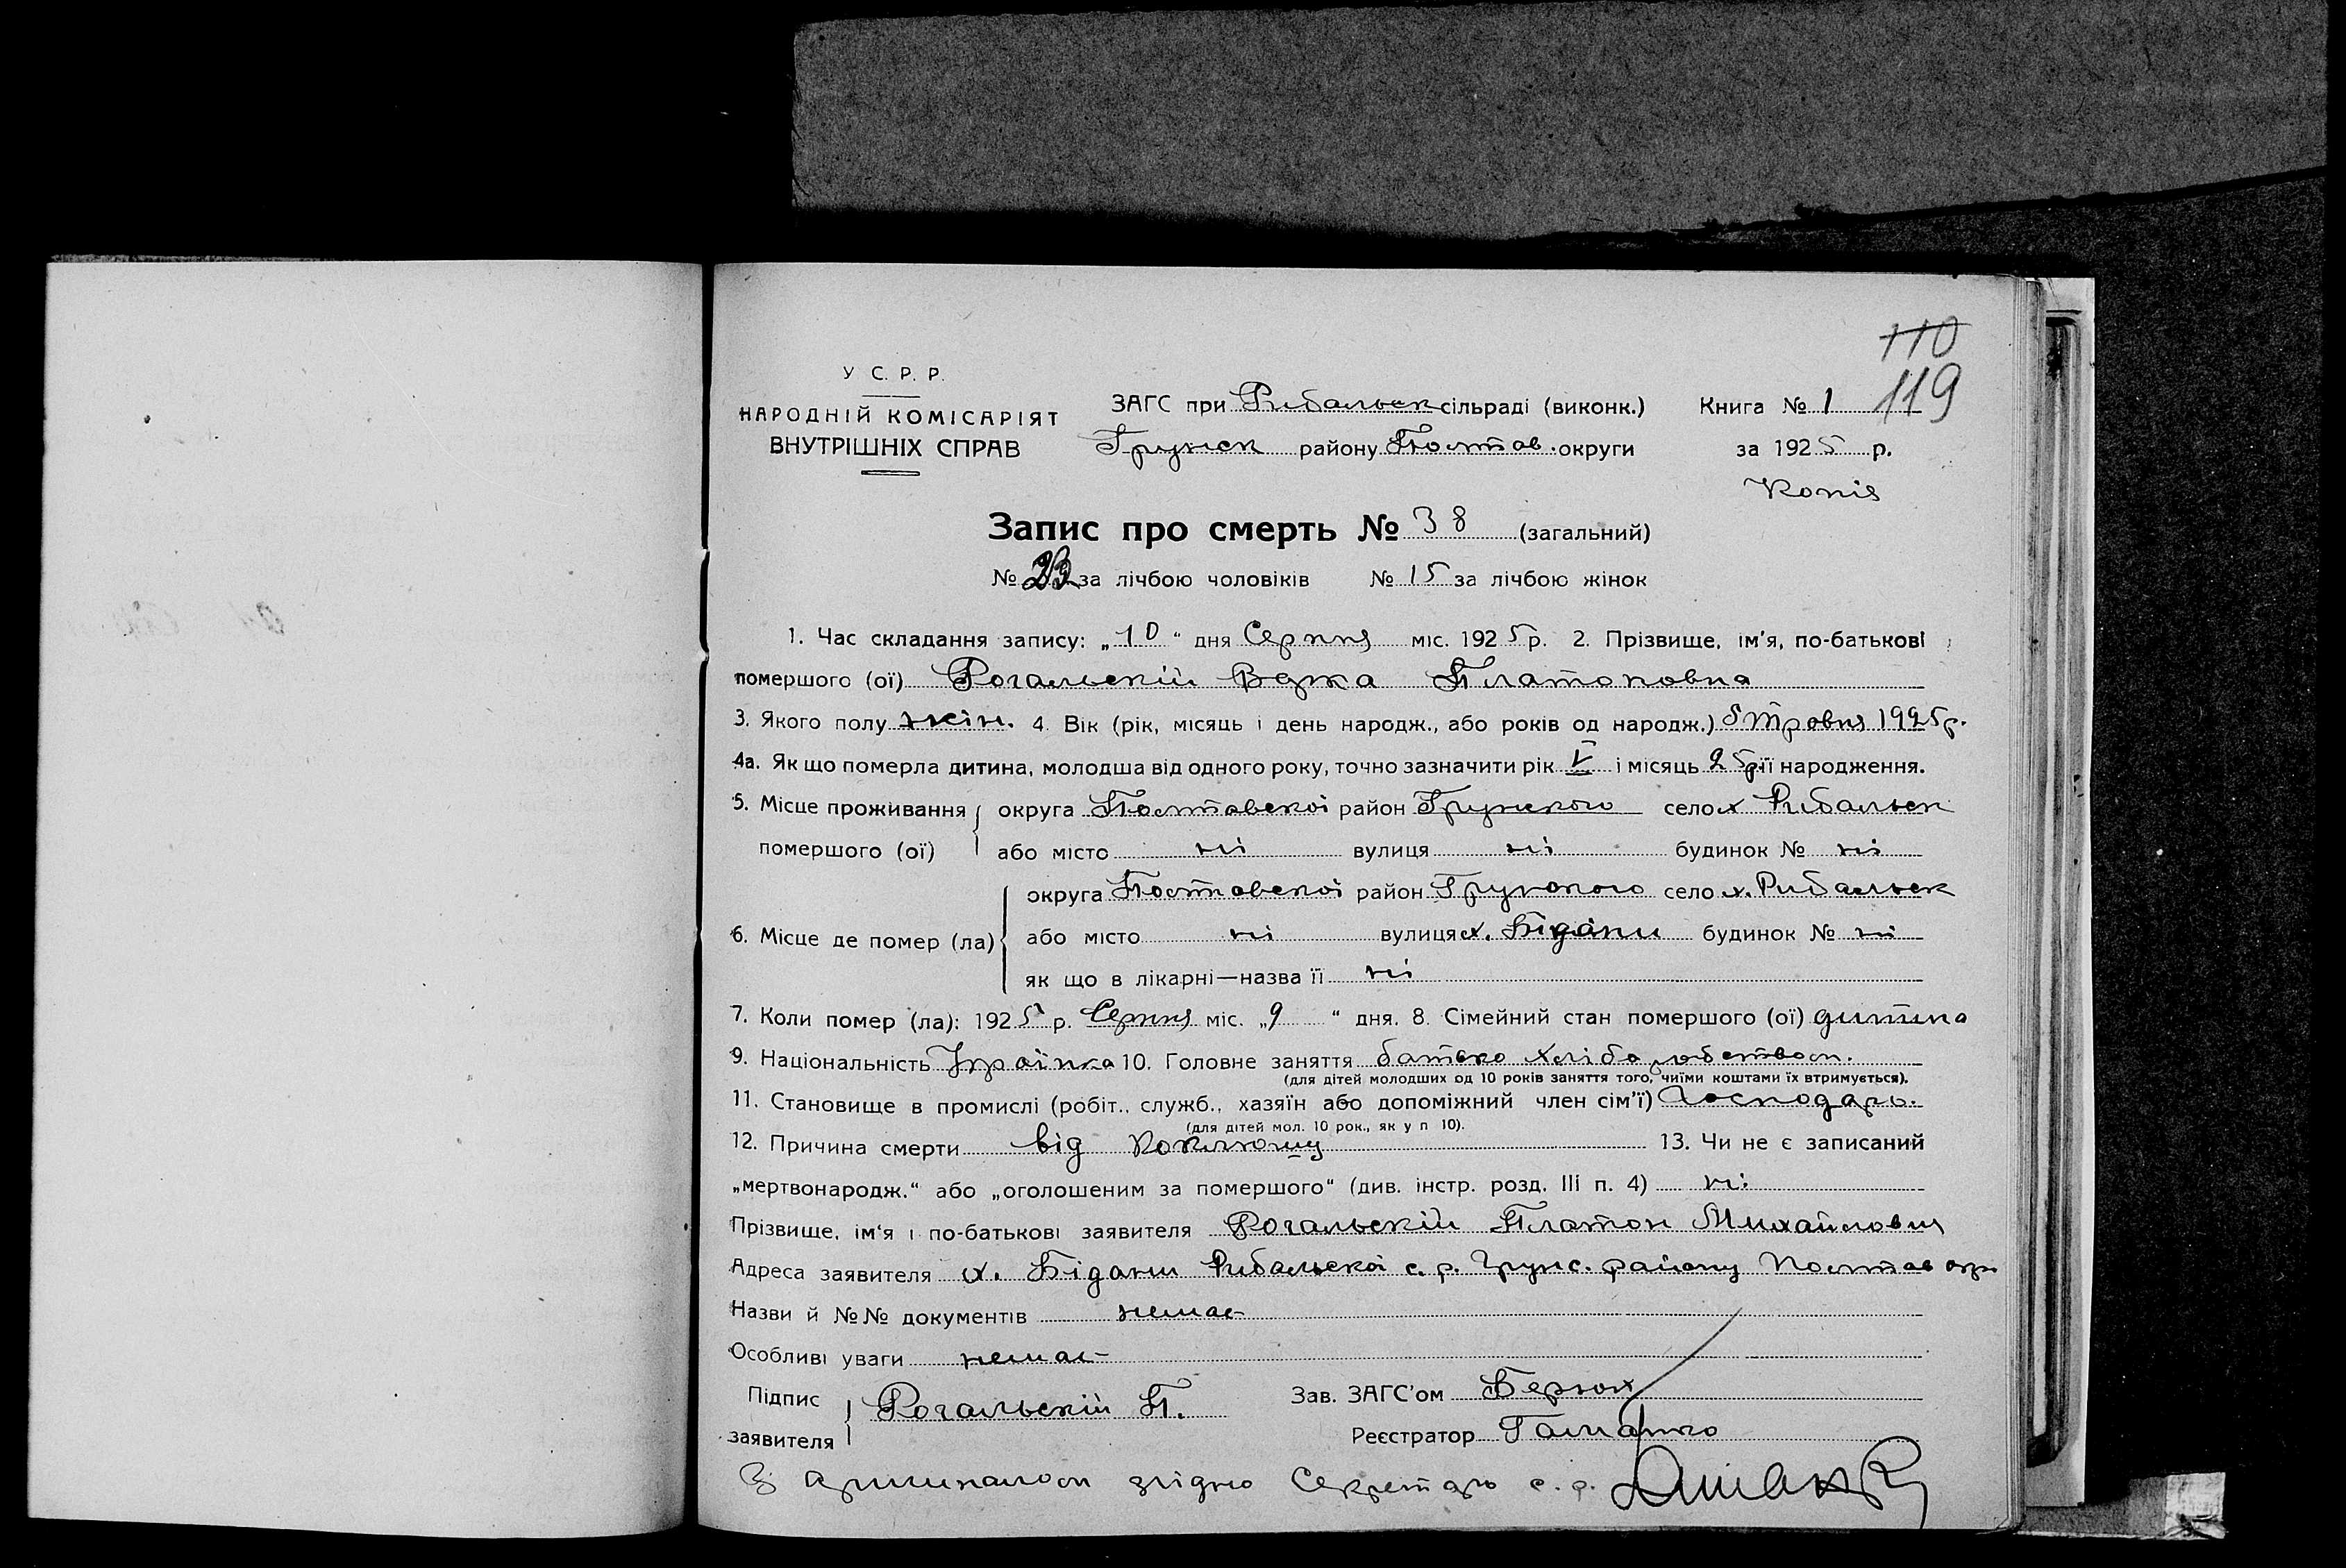 110
119
У С. Р. Р.
НАРОДНІЙ КОМІСАРІЯТ
ВНУТРІШНІХ СПРАВ
ЗАГС при Рибальск сільраді (виконк.)
Грунск району Полтав. округи
Книга № 1
за 1925 р.
Копія
Запис про смерть № 38 (загальний)
№ 23 за лічбою чоловіків № 15 за лічбою жінок
1. Час складання запису: „10“ дня Серпня міс. 1925 р. 2. Прізвище, ім'я, по-батькові
помершого (ої) Рогальскій Платоновна
3. Якого полу жін. 4. Вік (рік, місяць і день народж., або років од народж.) 5 Тровня 1925 р.
4а. Як що померла дитина, молодша від одного року, точно зазначити рік V і місяць 25 р. її народження.
5. Місце проживання помершого (ої) округа Полтавскоі район Грунского село х Рибальск
або місто ні вулиця ні будинок № ні
6. Місце де помер (ла) округа Полтавскоі район Грунского село х. Рибальск
або місто ні вулиця х. Бідани будинок № ні
як що в лікарні—назва її ні
7. Коли помер (ла): 1925 р. Серпня міс. „9“ дня. 8. Сімейний стан помершого (ої) дитина
9. Національність Украінка 10. Головне заняття батько хліборобством.
(для дітей молодших од 10 років заняття того, чиїми коштами їх втримується).
11. Становище в промислі (робіт., служб., хазяїн або допоміжний член сім'ї) Господарь.
(для дітей мол. 10 рок., як у п 10).
12. Причина смерти від Коклюшу 13. Чи не є записаний
„мертвонародж.“ або „оголошеним за помершого“ (див. інстр. розд. III п. 4) ні
Прізвище, ім'я і по-батькові заявителя Рогальскій Платон Михайлович
Адреса заявителя х. Бідани Рибальскоі с. р. Грунс. району Полтав окр
Назви й №№ документів немає
Особливі уваги немає
Підпис заявителя Рогальскій П.
Зав. ЗАГС'ом Берюх
Реєстратор
З оригиналом згідно Секретарь с. р.